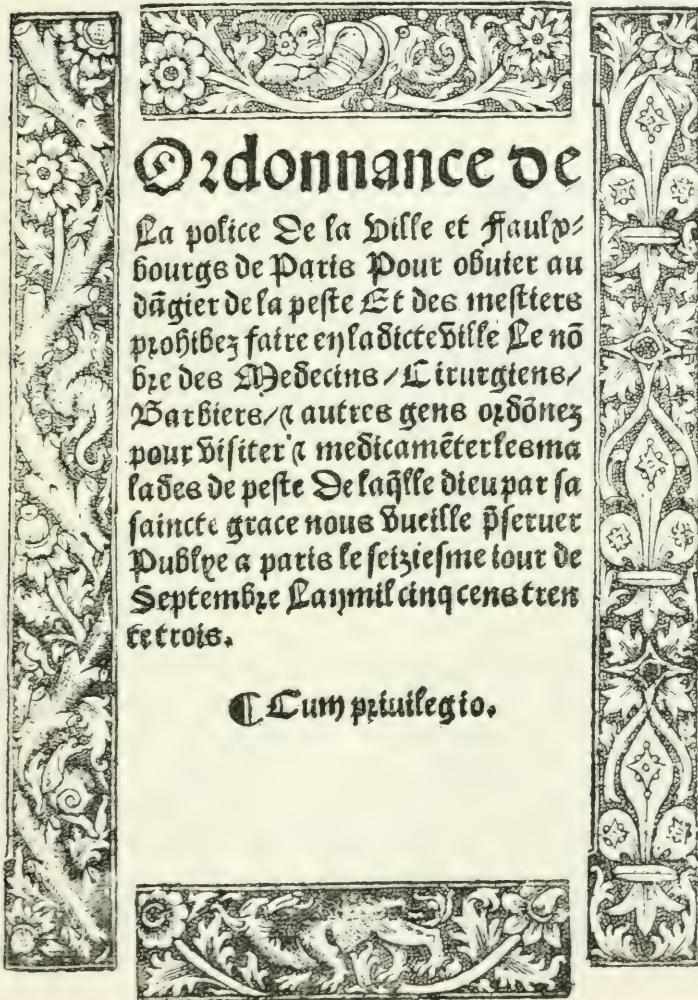 Ordonnance de
La police De la Ville et Faulx⸗
bourgs de Paris Pour obuier au
dãgier de la peste Et des mestiers
prohibez faire en la dicte Ville Le nõ
bre des Medecins/Cirurgiens/
Barbiers/⁊ autres gens ordõnez
pour visiter ⁊ medicamẽter les ma
lades de peste De laq̃lle dieu par sa
saincte grace nous vueille p̃seruer
Publye a paris le seiziesme iour de
Septembre Lan mil cinq cens tren
te trois.
¶ Cum priuilegio.